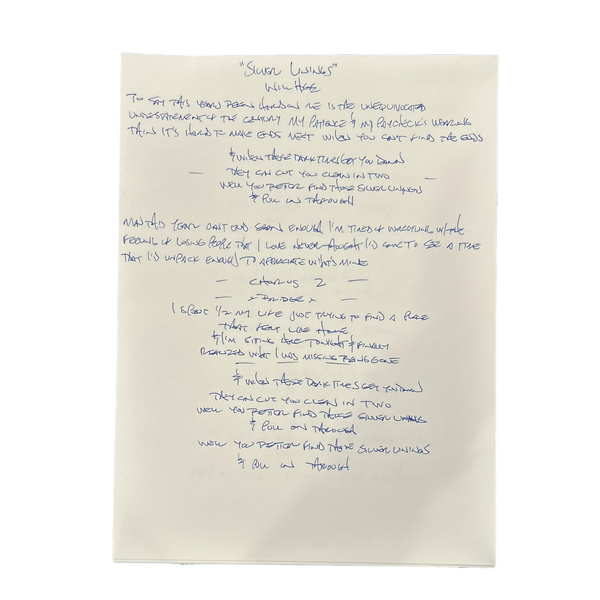 "SILVER LININGS"
WILL HOGE
TO SAY THIS YEARS BEEN HARD ON ME IS THE UNEQUIVOCATED
UNDERSTATEMENT OF THE CENTURY MY PATIENCE & MY PAYCHECK'S WEARING
THIN IT'S HARD TO MAKE ENDS MEET WHEN YOU CAN'T FIND THE ENDS
& WHEN THESE DARK TIMES GET YOU DOWN
— THEY CAN CUT YOU CLEAN IN TWO —
WELL YOU BETTER FIND THOSE SILVER LININGS
& PULL ON THROUGH
MAN THIS YEAR CAN'T END SOON ENOUGH I'M TIRED OF WRESTLING W/ THE
FEELING OF LOSING PEOPLE THAT I LOVE NEVER THOUGHT I'D LIVE TO SEE A TIME
THAT I'D UNPACK ENOUGH TO APPRECIATE WHAT'S MINE
— CHORUS 2 —
— BRIDGE —
I SPENT 1/2 MY LIFE JUST TRYING TO FIND A PLACE
THAT FELT LIKE HOME
& I'M SITTING HERE TONIGHT & FINALLY
REALIZED WHAT I WAS MISSING BEING GONE
& WHEN THESE DARK TIMES GET YOU DOWN
THEY CAN CUT YOU CLEAN IN TWO
WELL YOU BETTER FIND THOSE SILVER LININGS
& PULL ON THROUGH
WELL YOU BETTER FIND THOSE SILVER LININGS
& PULL ON THROUGH